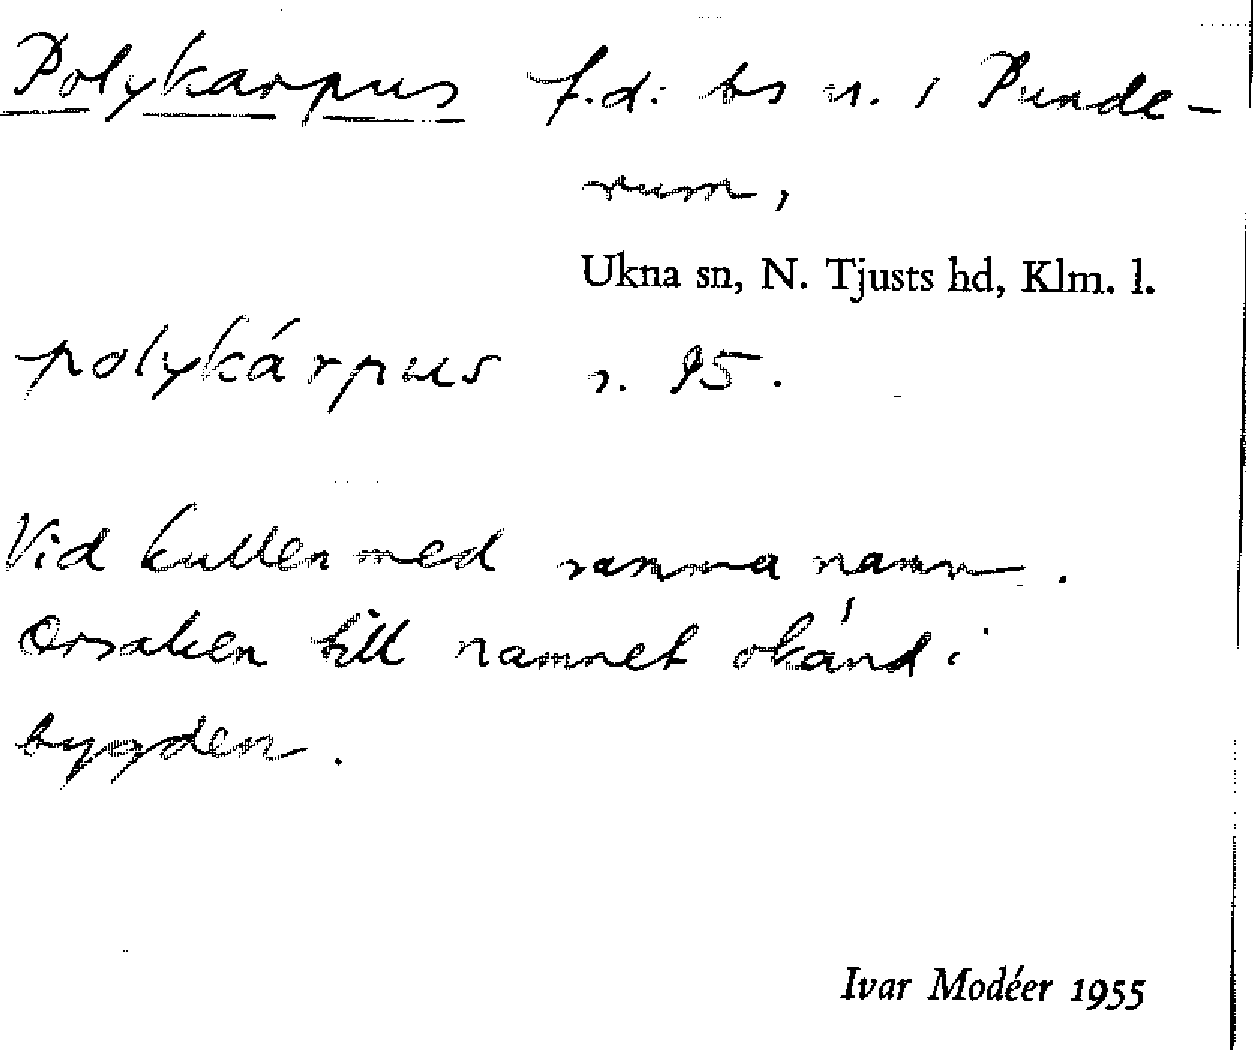 Polykarpus f.d. bs u. / Punde-
rum,
Ukna sn, N. Tjusts hd, Klm. l.
polykárpus s. 95.
Vid kullen med samma namn.
Orsaken till namnet okänd i
bygden.
Ivar Modéer 1955